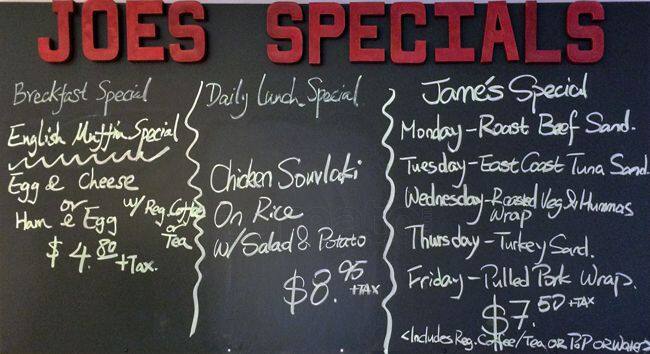 JOES SPECIALS
Breakfast Special
English Muffin Special
Egg & Cheese
or
Ham & Egg
w/ Reg. Coffee
or
Tea
$4.80 +Tax.
Daily Lunch Special
Chicken Souvlaki
On Rice
w/ Salad & Potato
$8.95 +TAX
Jame's Special
Monday - Roast Beef Sand.
Tuesday - East Coast Tuna Sand.
Wednesday - Roasted Veg & Hummas
Wrap
Thursday - Turkey Sand.
Friday - Pulled Pork Wrap.
$7.50 +TAX
<Includes Reg. Coffee/Tea OR PoP OR Water>